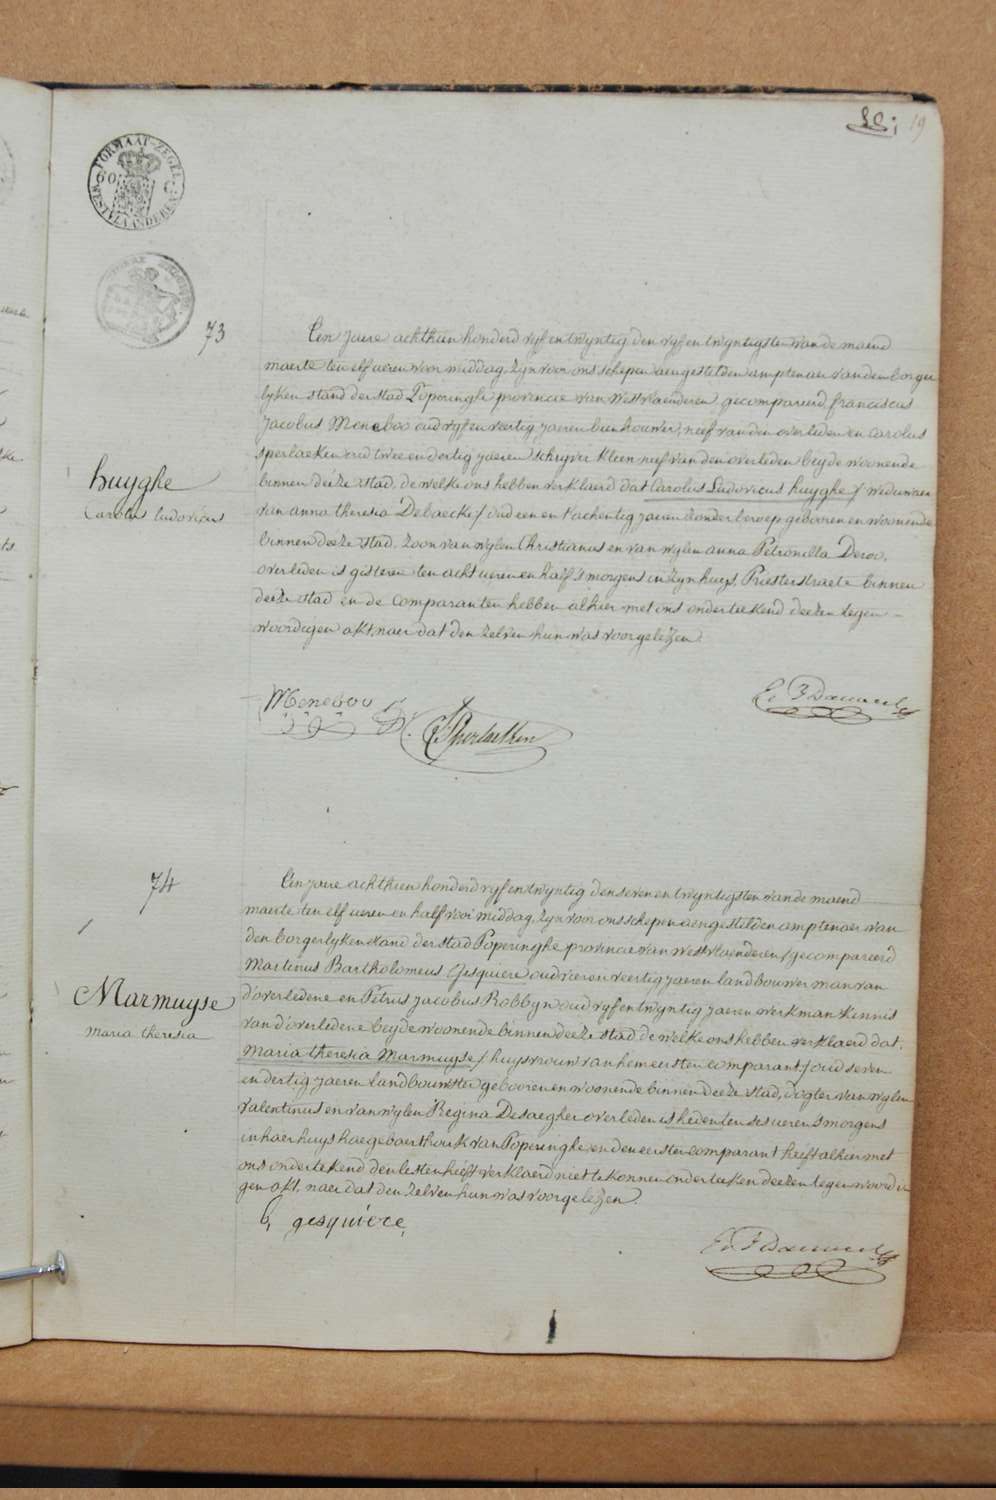 19
FORMAAT-ZEGEL
WESTVLAANDEREN
73
Een jaere achthien honderd vyf en twyntig den vyf en twyntigsten van de maend
maerte ten elf ueren voor middag, zyn voor ons schepen aengestelden amptenaer van den borger
lyken stand der stad Poperinghe provincie van Westvlaenderen gecompareerd, franciscus
Jacobus Meneboo oud vyf en veertig jaeren bierbrouwer, neef van den overleden en Carolus
sperlaeken oud twee en dertig jaeren schryver kleen neef van den overleden beyde woonende
binnen deéze stad, de welke ons hebben verklaerd dat Carolus Ludovicus huyghe / weduwaer
van anna theresia Debaecke / oud een en t'achentig jaeren zonder beroep gebooren en woonende
binnen deeze stad, zoon van wylen Christianus en van wylen anna Petronilla Deroo,
overleden is gisteren ten acht ueren en half 's morgens in zyn huys, Priesterstraete binnen
deeze stad en de comparanten hebben alhier met ons onderteekend deezen tegen-
woordigen akt, naer dat den zelven hun was voorgelezen.
huyghe
Carolus ludovicus
Meneboo
C. Sperlaeken
74
Een jaere achthien honderd vyf en twyntig den seven en twyntigsten van de maend
maerte ten elf ueren en half voor middag, zyn voor ons schepen aengestelden amptenaer van
den borgerlyken stand der stad Poperinghe provincie van Westvlaenderen / gecompareerd
Martinus Bartholomeus Gesquiere oud vier en veertig jaeren landbouwer man van
d'overledene en Petrus Jacobus Robbyn oud vyf en twyntig jaeren werkman kennis
van d'overledene beyde woonende binnen deeze stad de welke ons hebben verklaerd dat
Maria theresia Marmuyse / huysvrouw van hem eersten comparant / oud seven
en dertig jaeren landbouwster gebooren en woonende binnen deeze stad, dogter van wylen
Valentinus en van wylen Regina Desaegher overleden is heden ten ses ueren 's morgens
in haer huys haegebaerthouk van Poperinghe en den eersten comparant heeft alhier met
ons onderteekend den lesten heeft verklaerd niet te konnen onderteeken deezen tegenwoordi
gen akt, naer dat den zelven hun was voorgelezen.
Marmuyse
maria theresia
gesquiere